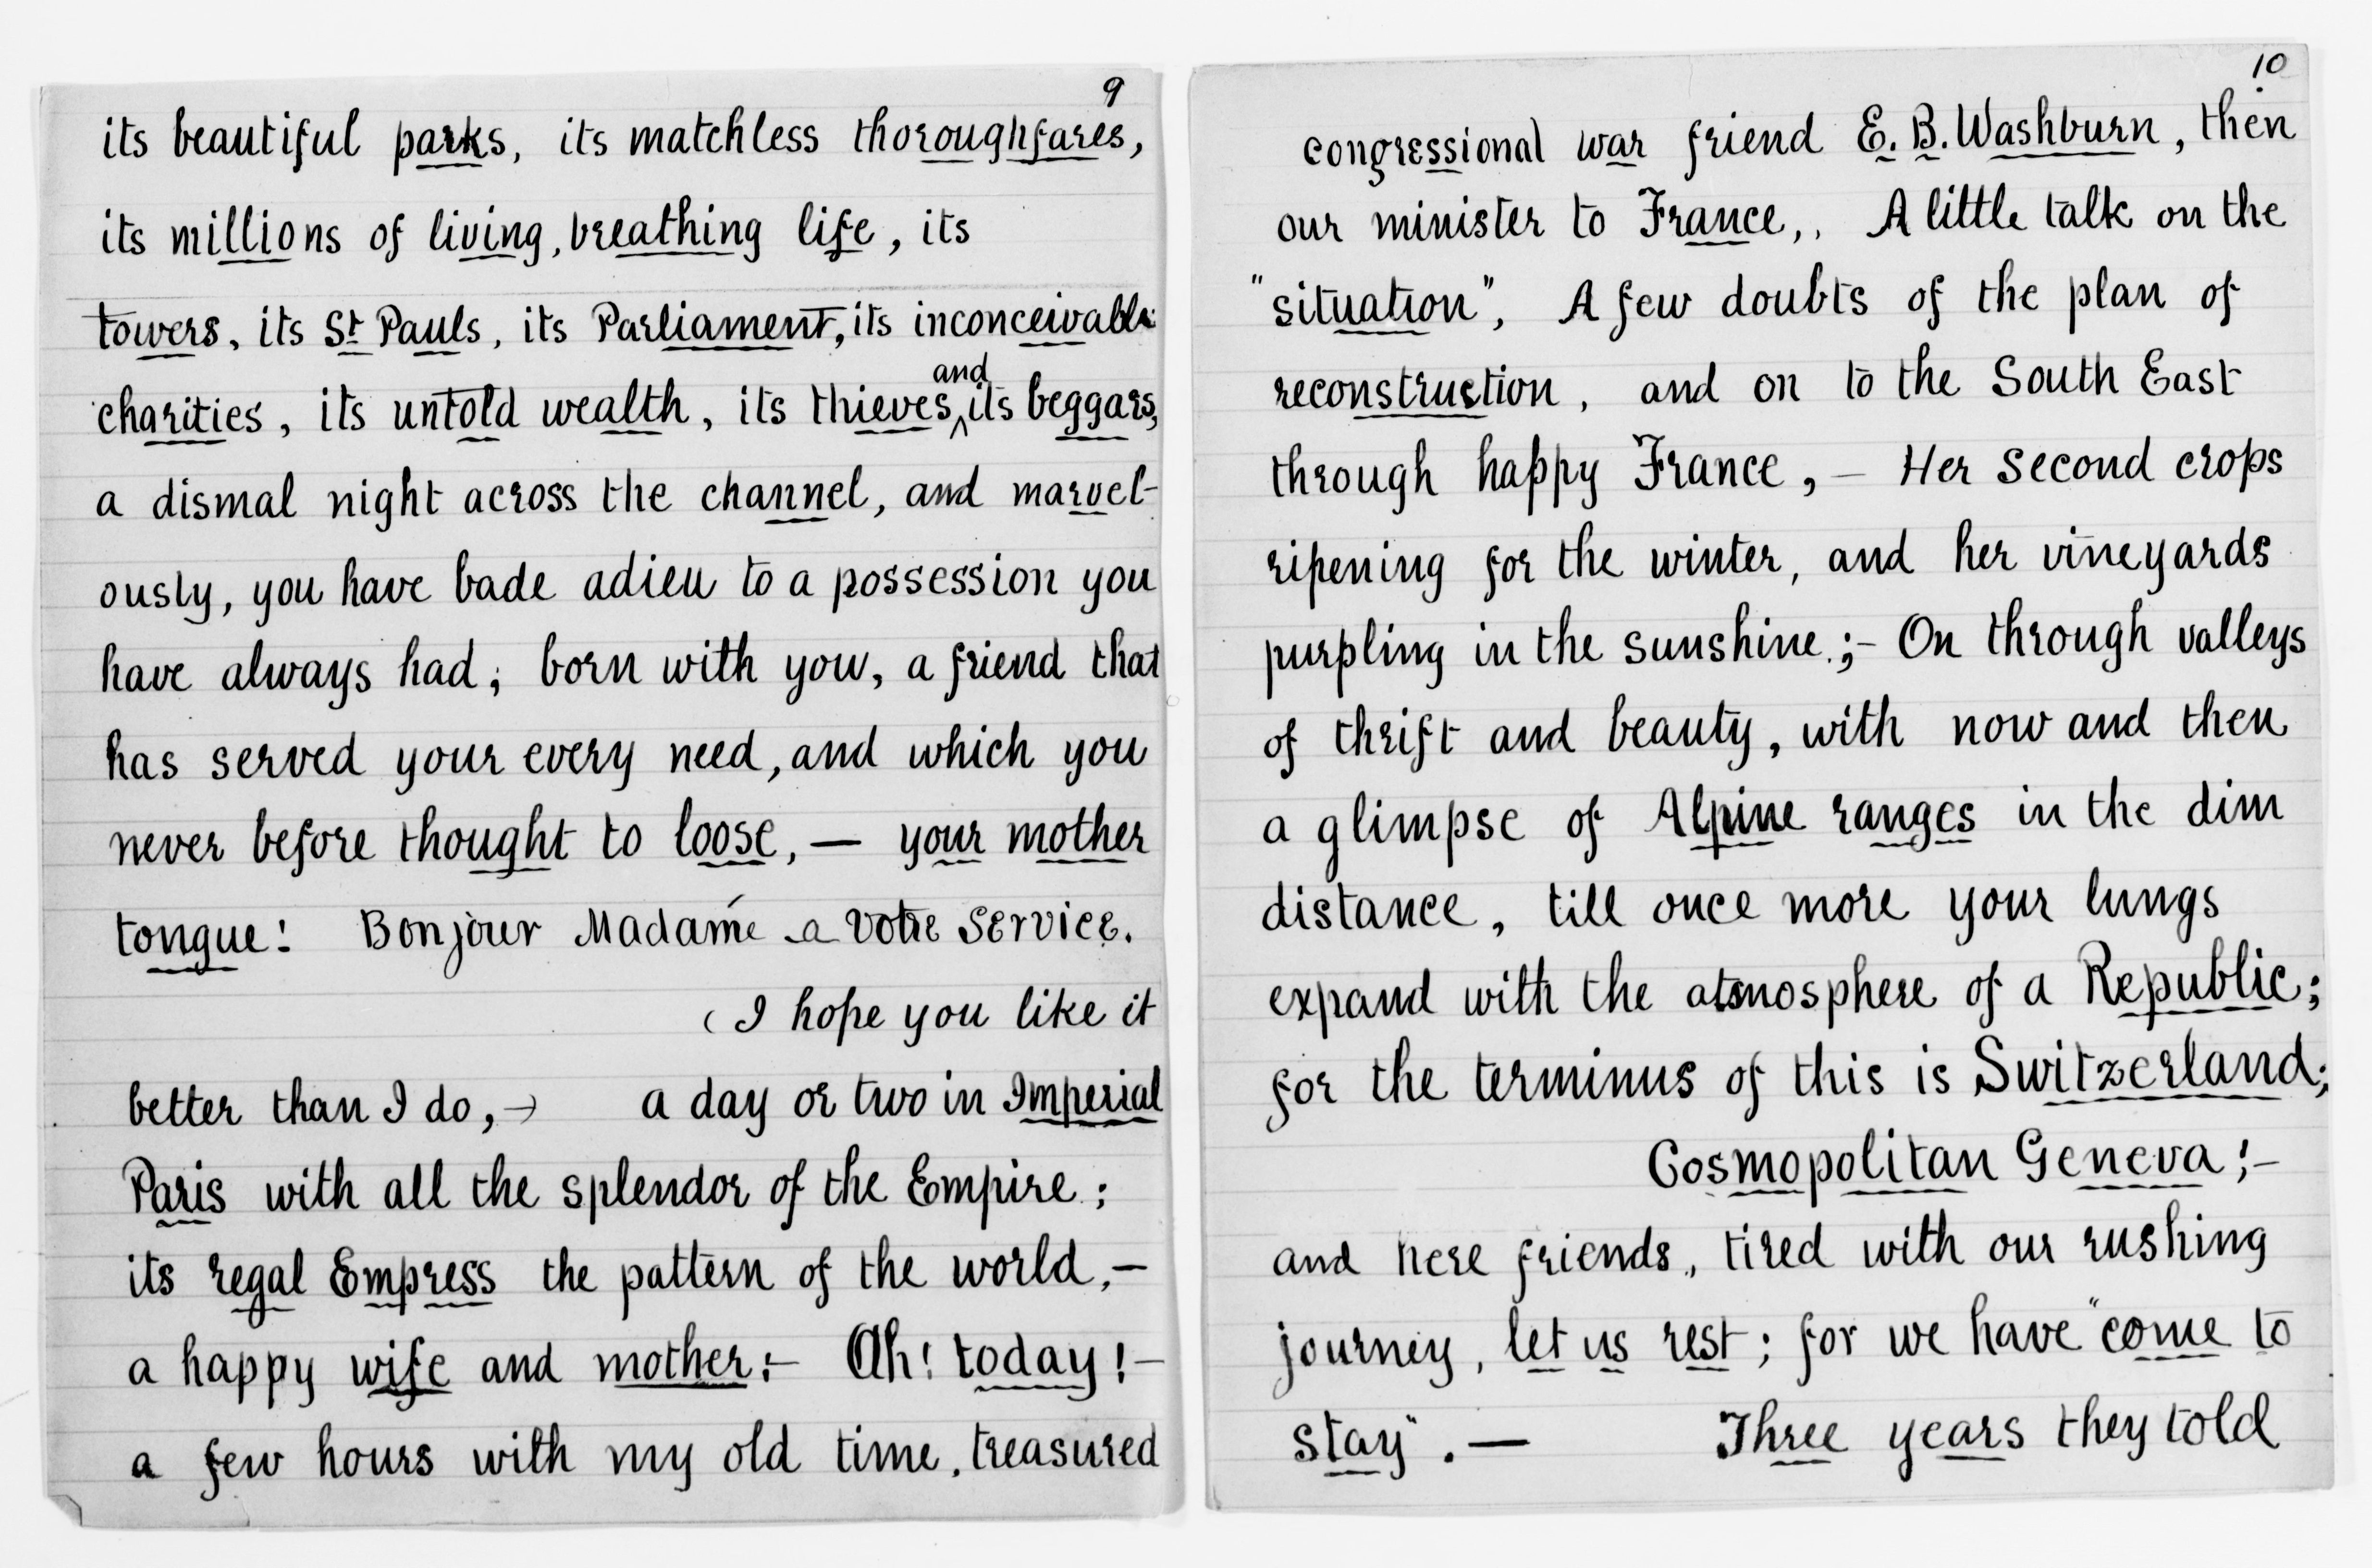 9
its beautiful parks, its matchless thoroughfares,
its millions of living, breathing life, its
towers, its St Pauls, its Parliament, its inconceivable
charities, its untold wealth, its thieves, and its beggars,
a dismal night across the channel, and marvel-
ously, you have bade adieu to a possession you
have always had; born with you, a friend that
has served your every need, and which you
never before thought to loose, — your mother
tongue! Bonjour Madame a votre service.
( I hope you like it
better than I do, -) a day or two in Imperial
Paris with all the splendor of the Empire;
its regal Empress the pattern of the world, —
a happy wife and mother:- Ah! today! —
a few hours with my old time, treasured
10
congressional war friend E. B. Washburn, then
our minister to France,. A little talk on the
"situation", A few doubts of the plan of
reconstruction, and on to the South East
through happy France, — Her second crops
ripening for the winter, and her vineyards
purpling in the sunshine.;- On through valleys
of thrift and beauty, with now and then
a glimpse of Alpine ranges in the dim
distance, till once more your lungs
expand with the atmosphere of a Republic;
for the terminus of this is Switzerland;
Cosmopolitan Geneva!-
and here friends, tired with our rushing
journey, let us rest; for we have "come to
stay". — Three years they told